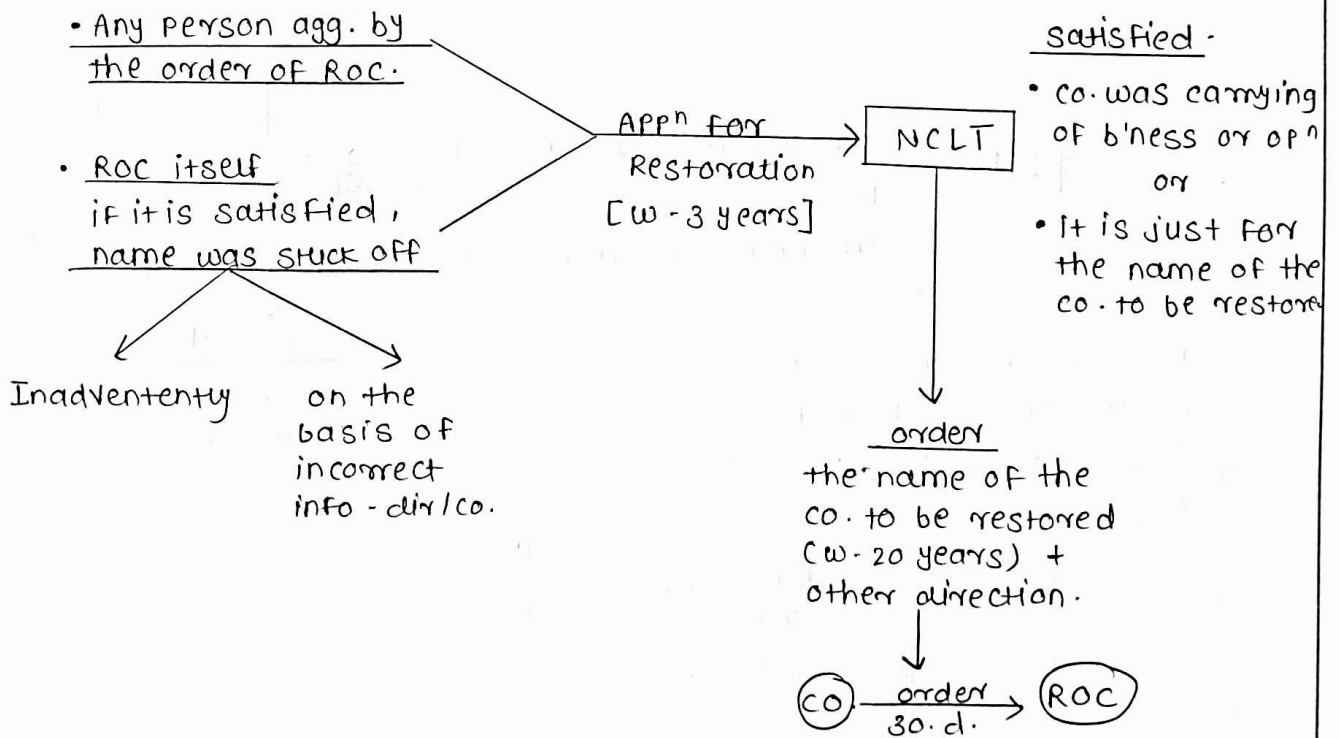 • Any person agg. by
the order of ROC.
• ROC itself
if it is satisfied,
name was stuck off
Inadventently
on the
basis of
incorrect
info - dir/co.
Appⁿ for
Restoration
[w - 3 years]
NCLT
satisfied.
• co. was carrying
of b'ness or opⁿ
or
• it is just for
the name of the
co. to be restore
order
the name of the
co. to be restored
(w. 20 years) +
other direction.
CO order ROC
30. d.